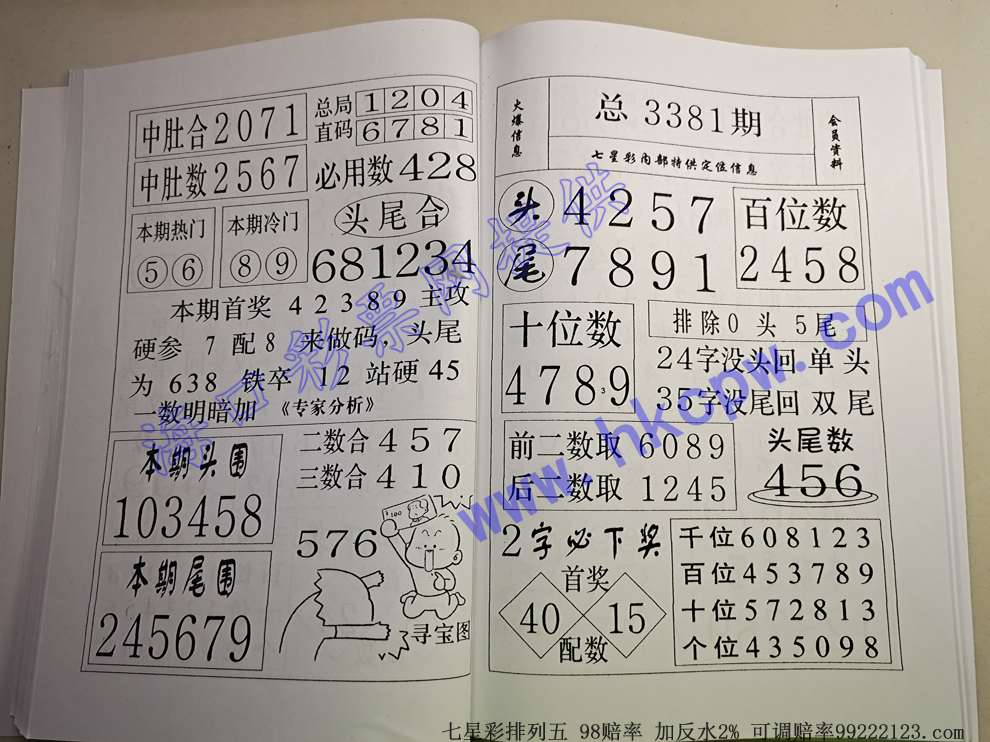 中肚合2071
中肚数2567
总局 1204
直码 6781
必用数428
本期热门
⑤⑥
本期冷门
⑧⑨
头尾合
681234
本期首奖 42389 主攻
硬参 7 配8 来做码,头尾
为 638 铁卒 12 站硬 45
一数明暗加 《专家分析》
本期头围
103458
本期尾围
245679
二数合 457
三数合 410
576
100
6
寻宝图
火爆信息
总 3381期
七星彩内部特供定位信息
会员资料
头 4257
尾 7891
百位数
2458
十位数
47839
排除0 头 5尾
24字没头回 单 头
35字没尾回 双 尾
前二数取 6089
后二数取 1245
头尾数
456
2字必下奖
首奖
40 15
配数
千位608123
百位453789
十位572813
个位435098
海口彩票网提供
www.hkcpw.com
七星彩排列五 98赔率 加反水2% 可调赔率99222123.com